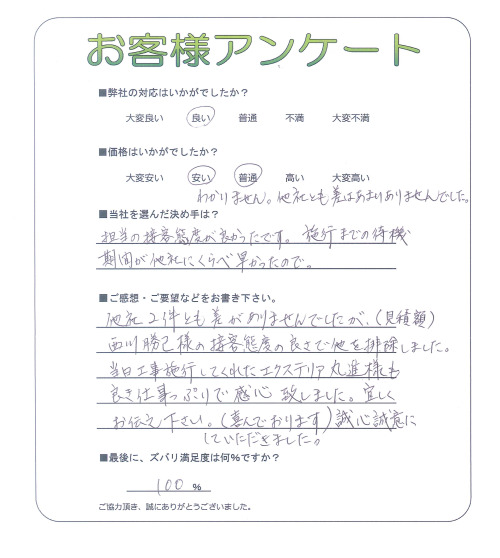 お客様アンケート
■弊社の対応はいかがでしたか？
大変良い 良い 普通 不満 大変不満
■価格はいかがでしたか？
大変安い 安い 普通 高い 大変高い
わかりません。他社とも差はあまりありませんでした。
■当社を選んだ決め手は？
担当の接客態度が良かったです。施行までの待機
期間が他社にくらべ早かったので。
■ご感想・ご要望などをお書き下さい。
他社2件とも差がありませんでしたが、(見積額)
西川勝己様の接客態度の良さで他を排除しました。
当日工事施行してくれたエクステリア丸進様も
良き仕事っぷりで感心致しました。宜しく
お伝え下さい。(喜んでおります)誠心誠意に
していただきました。
■最後に、ズバリ満足度は何％ですか？
100 %
ご協力頂き、誠にありがとうございました。